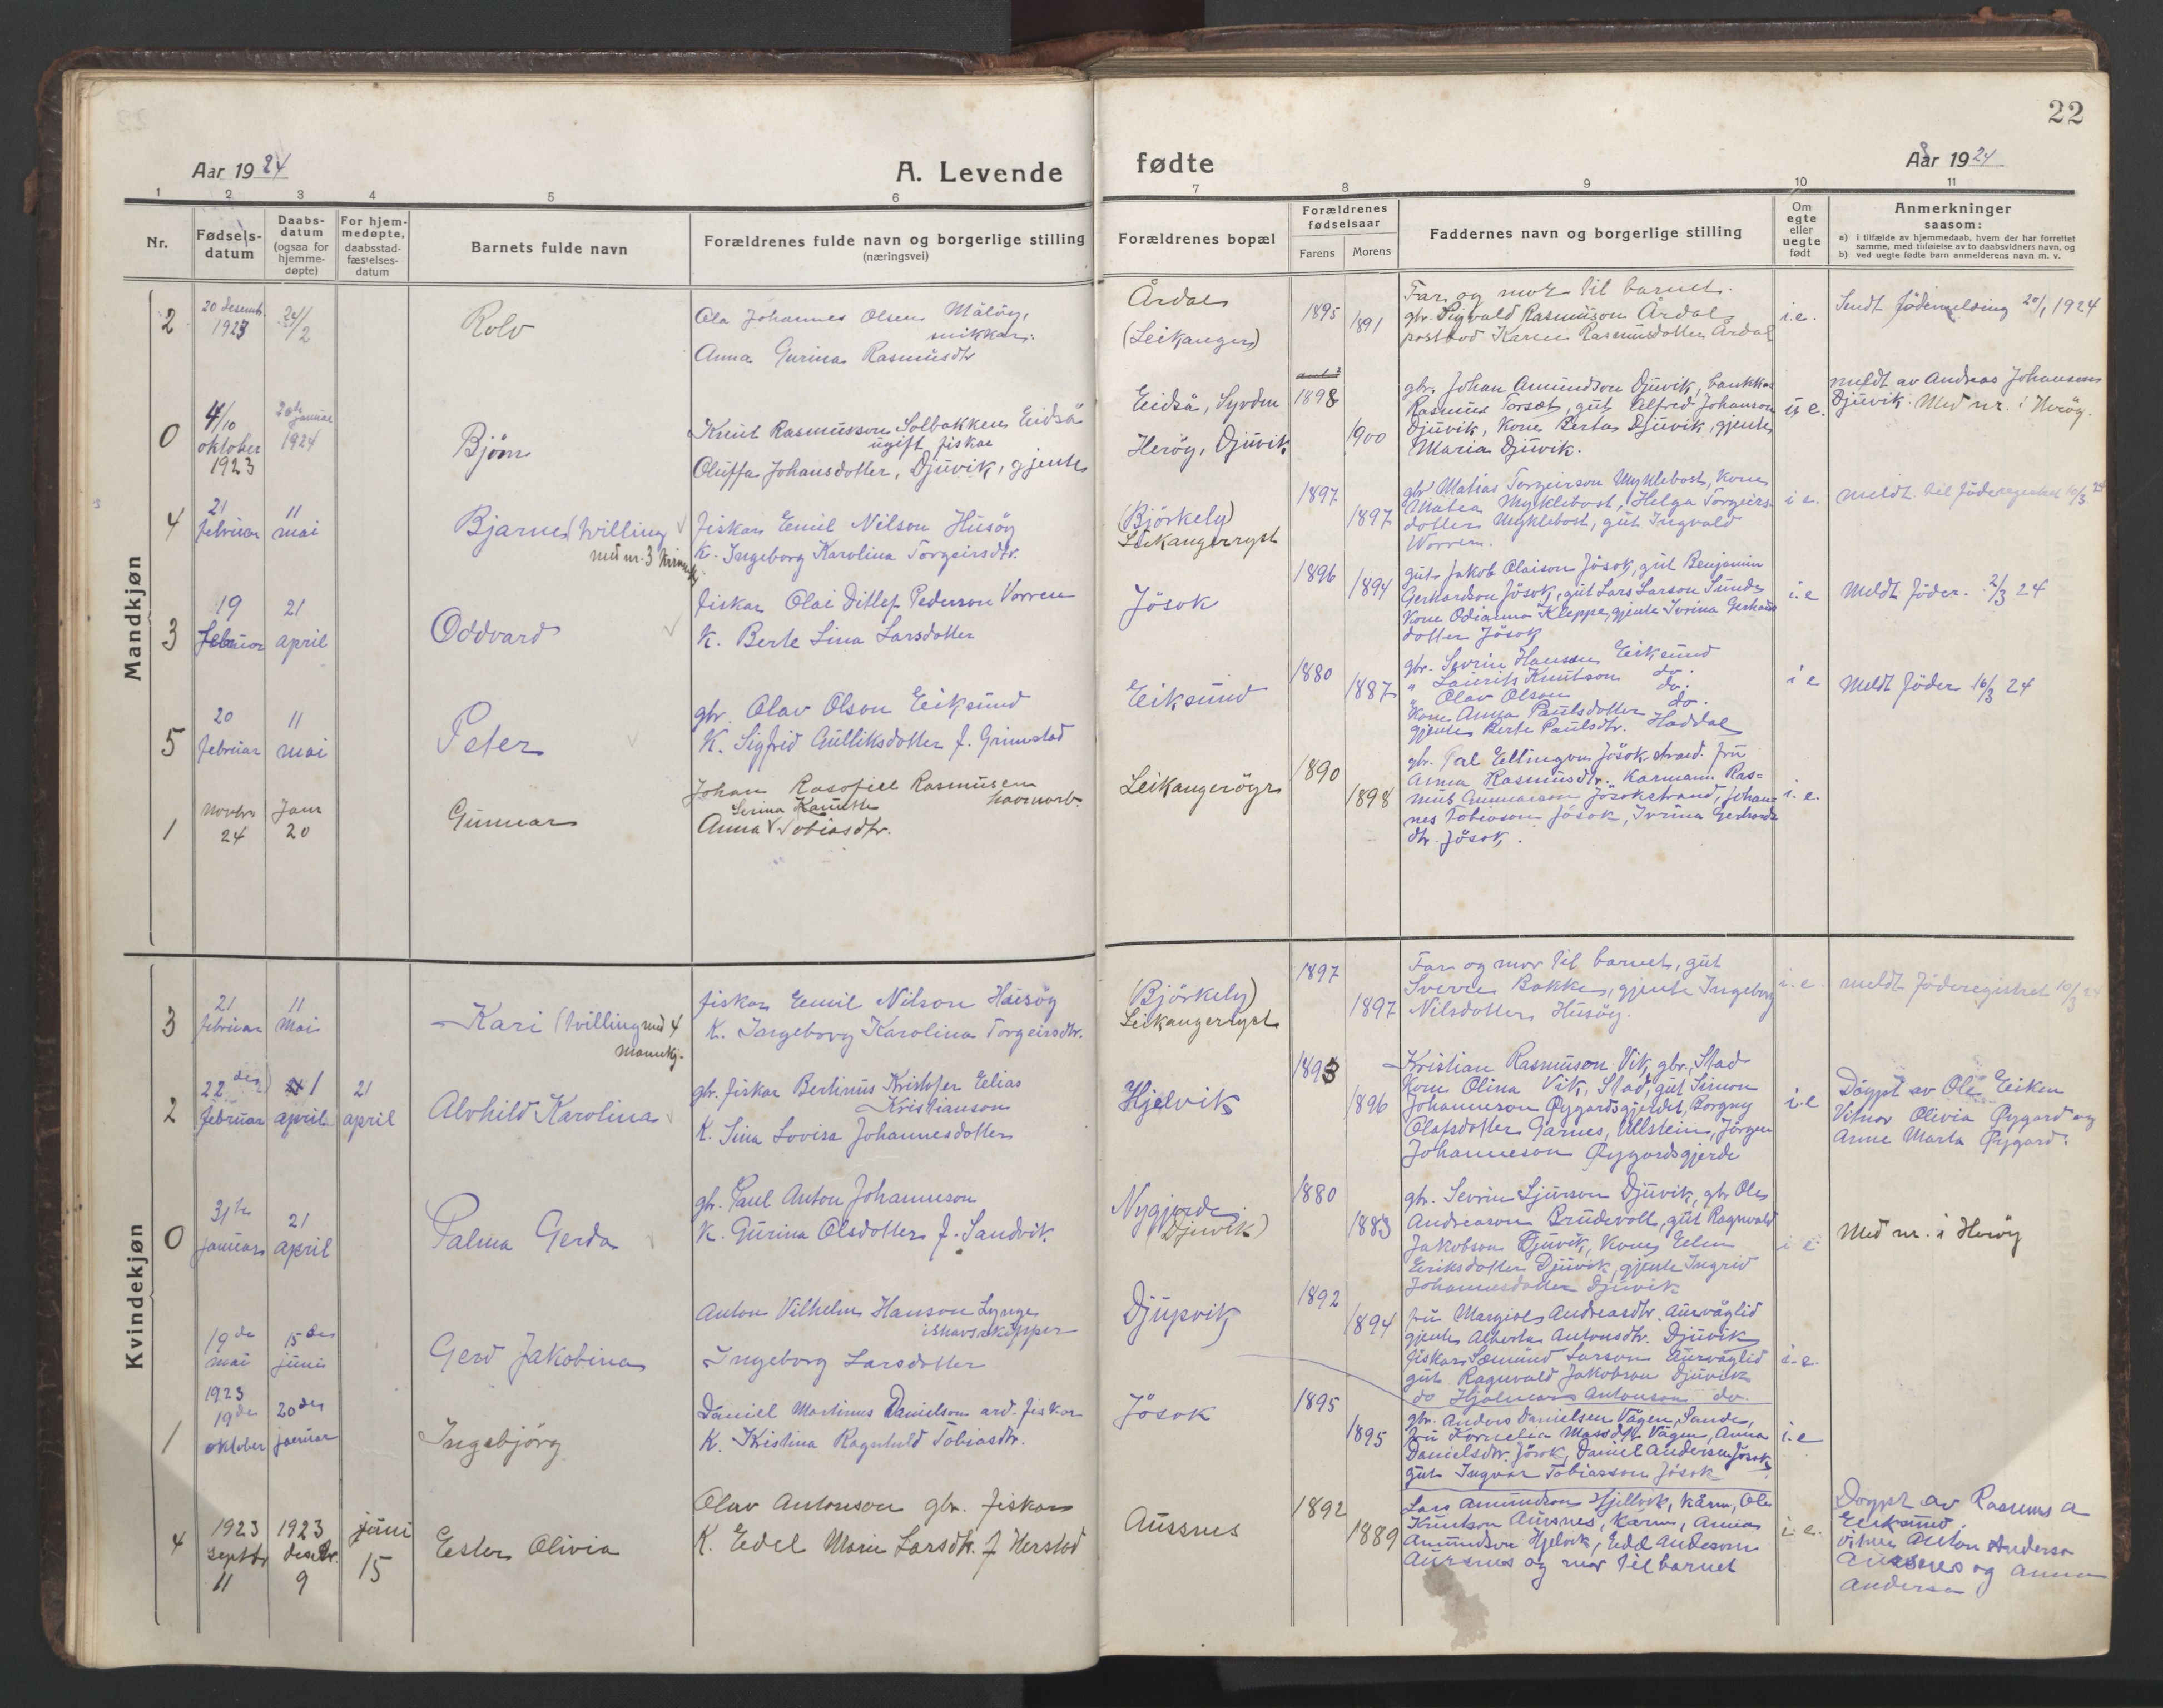 22
Aar 1924
A. Levende
fødte
Aar 1924
1 2 3 4 5 6 7 8 9 10 11
Nr.
Fødselsdatum
Daabsdatum (ogsaa for hjemmedøpte)
For hjemmedøpte, daabsstadfæstelsesdatum
Barnets fulde navn
Forældrenes fulde navn og borgerlige stilling
(næringsvei)
Forældrenes bopæl
Forældrenes fødselsaar
Farens Morens
Faddernes navn og borgerlige stilling
Om egte eller uegte født
Anmerkninger
saasom:
a) i tilfælde av hjemmedaab, hvem der har forrettet samme, med tilføielse av to daabsvidners navn, og
b) ved uegte fødte barn anmelderens navn m. v.
Mandkjøn
2
20 desemb. 1923
24/2
Rolv
Ola Johannes Olsen Måløy,
snikkar.
Anna Gurina Rasmusdtr
Årdal
(Leikanger)
1895
1891
Far og mor til barnet.
gbr. Sigvald Rasmusson Årdal
postbod Karen Rasmusdotter Årdal
i.e.
Sendt fødemelding 20/1 1924
0
4/10
oktober
1923
20de januar
1924
Bjørn
Knut Rasmusson Solbakken Eidså
ugift fiskar
Oluffa Johansdotter, Djuvik, gjente
Eidså, Syvden
Herøy, Djuvik
1898
1900
gbr. Johan Amundson Djuvik, bankkas
Rasmus Torset, gut Alfred Johanson
Djuvik, Kone Berta Djuvik, gjente
Maria Djuvik.
u e.
meldt av Andreas Johansen
Djuvik. Med nr. i Herøy.
4
21
februar
11
mai
Bjarne (tvilling
med nr. 3
fiskar Emil Nilson Husøy
K. Ingeborg Karolina Torgeirsdtr.
(Bjørkely)
Leikangerryst
1897
1897
gbr Matias Torgeirson Myklebost, Kone
Matea Myklebost, Helga Torgeirs-
dotter Myklebost, gut Ingvald
Worren.
i e.
meldt til föderegistret 10/3 24
3
19
februar
21
april
Oddvard
fiskar Olai Ditlef Pederson Vorren
K. Berte Lina Larsdotter
Jösok
1896
1894
gut Jakob Olaison Jösok, gut Benjamin
Gerhardson Jösok, gut Lars Larson Sunde
Kone Odianna Kleppe, gjente Ivrina Gerhards
dotter Jösok
i.e
Meldt föder. 2/3 24
5
20
februar
11
mai
Peter
gbr. Olav Olson Eiksund
K. Sigfrid Aulliksdotter f. Grimstad
Eiksund
1880
1887
gbr. Sevrin Hansen Eiksund
" Laurits Knutson do.
" Olav Olson do.
Kone Anna Paulsdotter do.
gjente Berte Paulsdtr. Haddal
i e
Meldt föder 16/3 24
1
Novbr
24
Jan
20
Gunnar
Johan Rasmusen
Anna Tobiasdtr.
Leikangerøyr
1890
1898
gbr. Pal Ellingson Jösok-strand. fru
Anna Rasmusdtr. Karmann Ras=
mus Gunnarson Jösokstrand, Johan=
nes Tobiason Jösok, Ivrina Gerhards
dtr. Jösok.
i.e.
Kvindekjøn
3
21
februar
11
Mai
Kari (tvilling med 4
mannkj.
fiskar Emil Nilson Husøy
K. Ingeborg Karolina Torgeirsdtr.
(Bjørkely)
Leikangerryst
1897
1897
Far og mor til barnet, gut
Sverre Bakke, gjente Ingeborg
Nilsdotter Husøy.
i.e.
meldt föderegistret 10/3 24
2
22 den
februar
1
april
21
april
Alvhild Karolina
gbr. fiskar Bertinus Kristofer Elias
Kristianson
K. Sina Lovisa Johannesdotter
Hjelvik
1893
1896
Kristian Rasmuson Vik, gbr, Stad
Kone Olina Vik, Stad, gut Simon
Johanneson Øygardsgjerdet, Borgny
Olafsdotter Garnes, Ulstein, Jörgen
Johanneson Øygardsgjerde
i.e
Döypt av Ole Eiken
Vitnor Olivia Øygard og
Anne Marta Øygard.
0
31te
januar
21
april
Palma Gerda
gbr. Paul Anton Johanneson
K. Gurina Olsdotter f. Sandvik
Nygjerde
Djuvik)
1880
1883
gbr. Sevrin Sjurson Djuvik, gbr Ole
Andreason Brudevoll, gut Ragnvald
Jakobson Djuvik, Kone Elen
Eriksdotter Djuvik, gjente Ingrid
Johannesdotter Djuvik
i e
Med nr. i Herøy
19de
mai
15de
juni
Gerd Jakobina
Anton Vilhelm Hanson Lynge
ishavsskipper
Ingeborg Larsdotter
Djupvik
1892
1894
fru Margit Andreasdtr. Aurvåglid
gjente Alberta Antonsdtr. Djuvik
fiskar Sæmund Larson Aurvåglid
gut Ragnvald Jakobson Djuvik
do Hjalmar Antonson do.
i.e.
1
1923
19de
oktober
20de
januar
Ingebjörg
Daniel Martinus Danielson arb. fiskar
K. Kristina Ragnhild Tobiasdtr.
Jösok
1895
1895
gbr. Anders Danielsen Vågen, Sande,
fru Kornelia Massdtr Vågen, Anna
Danielsdtr. Jösok, Daniel Andersen Jösok
gut Ingvar Tobiasson Jösok
i.e
4
1923
septbr
11
1923
desbr.
9
juni
15
Ester Olivia
Olav Antonson gbr. fiskar
K. Edel Marie Larsdtr. f Herstad
Aussnes
1892
1889
Lars Amundson Hjellvik, kårm, Ole
Knutson Aursnes, kårm, Anna
Amundson Hjelvik, Edd Andeson
Aursnes og mor til barnet
i.e.
Döypt av Rasmus A
Eiksund.
vitner Anton Anderso
Aursnes og Anna
Anderso